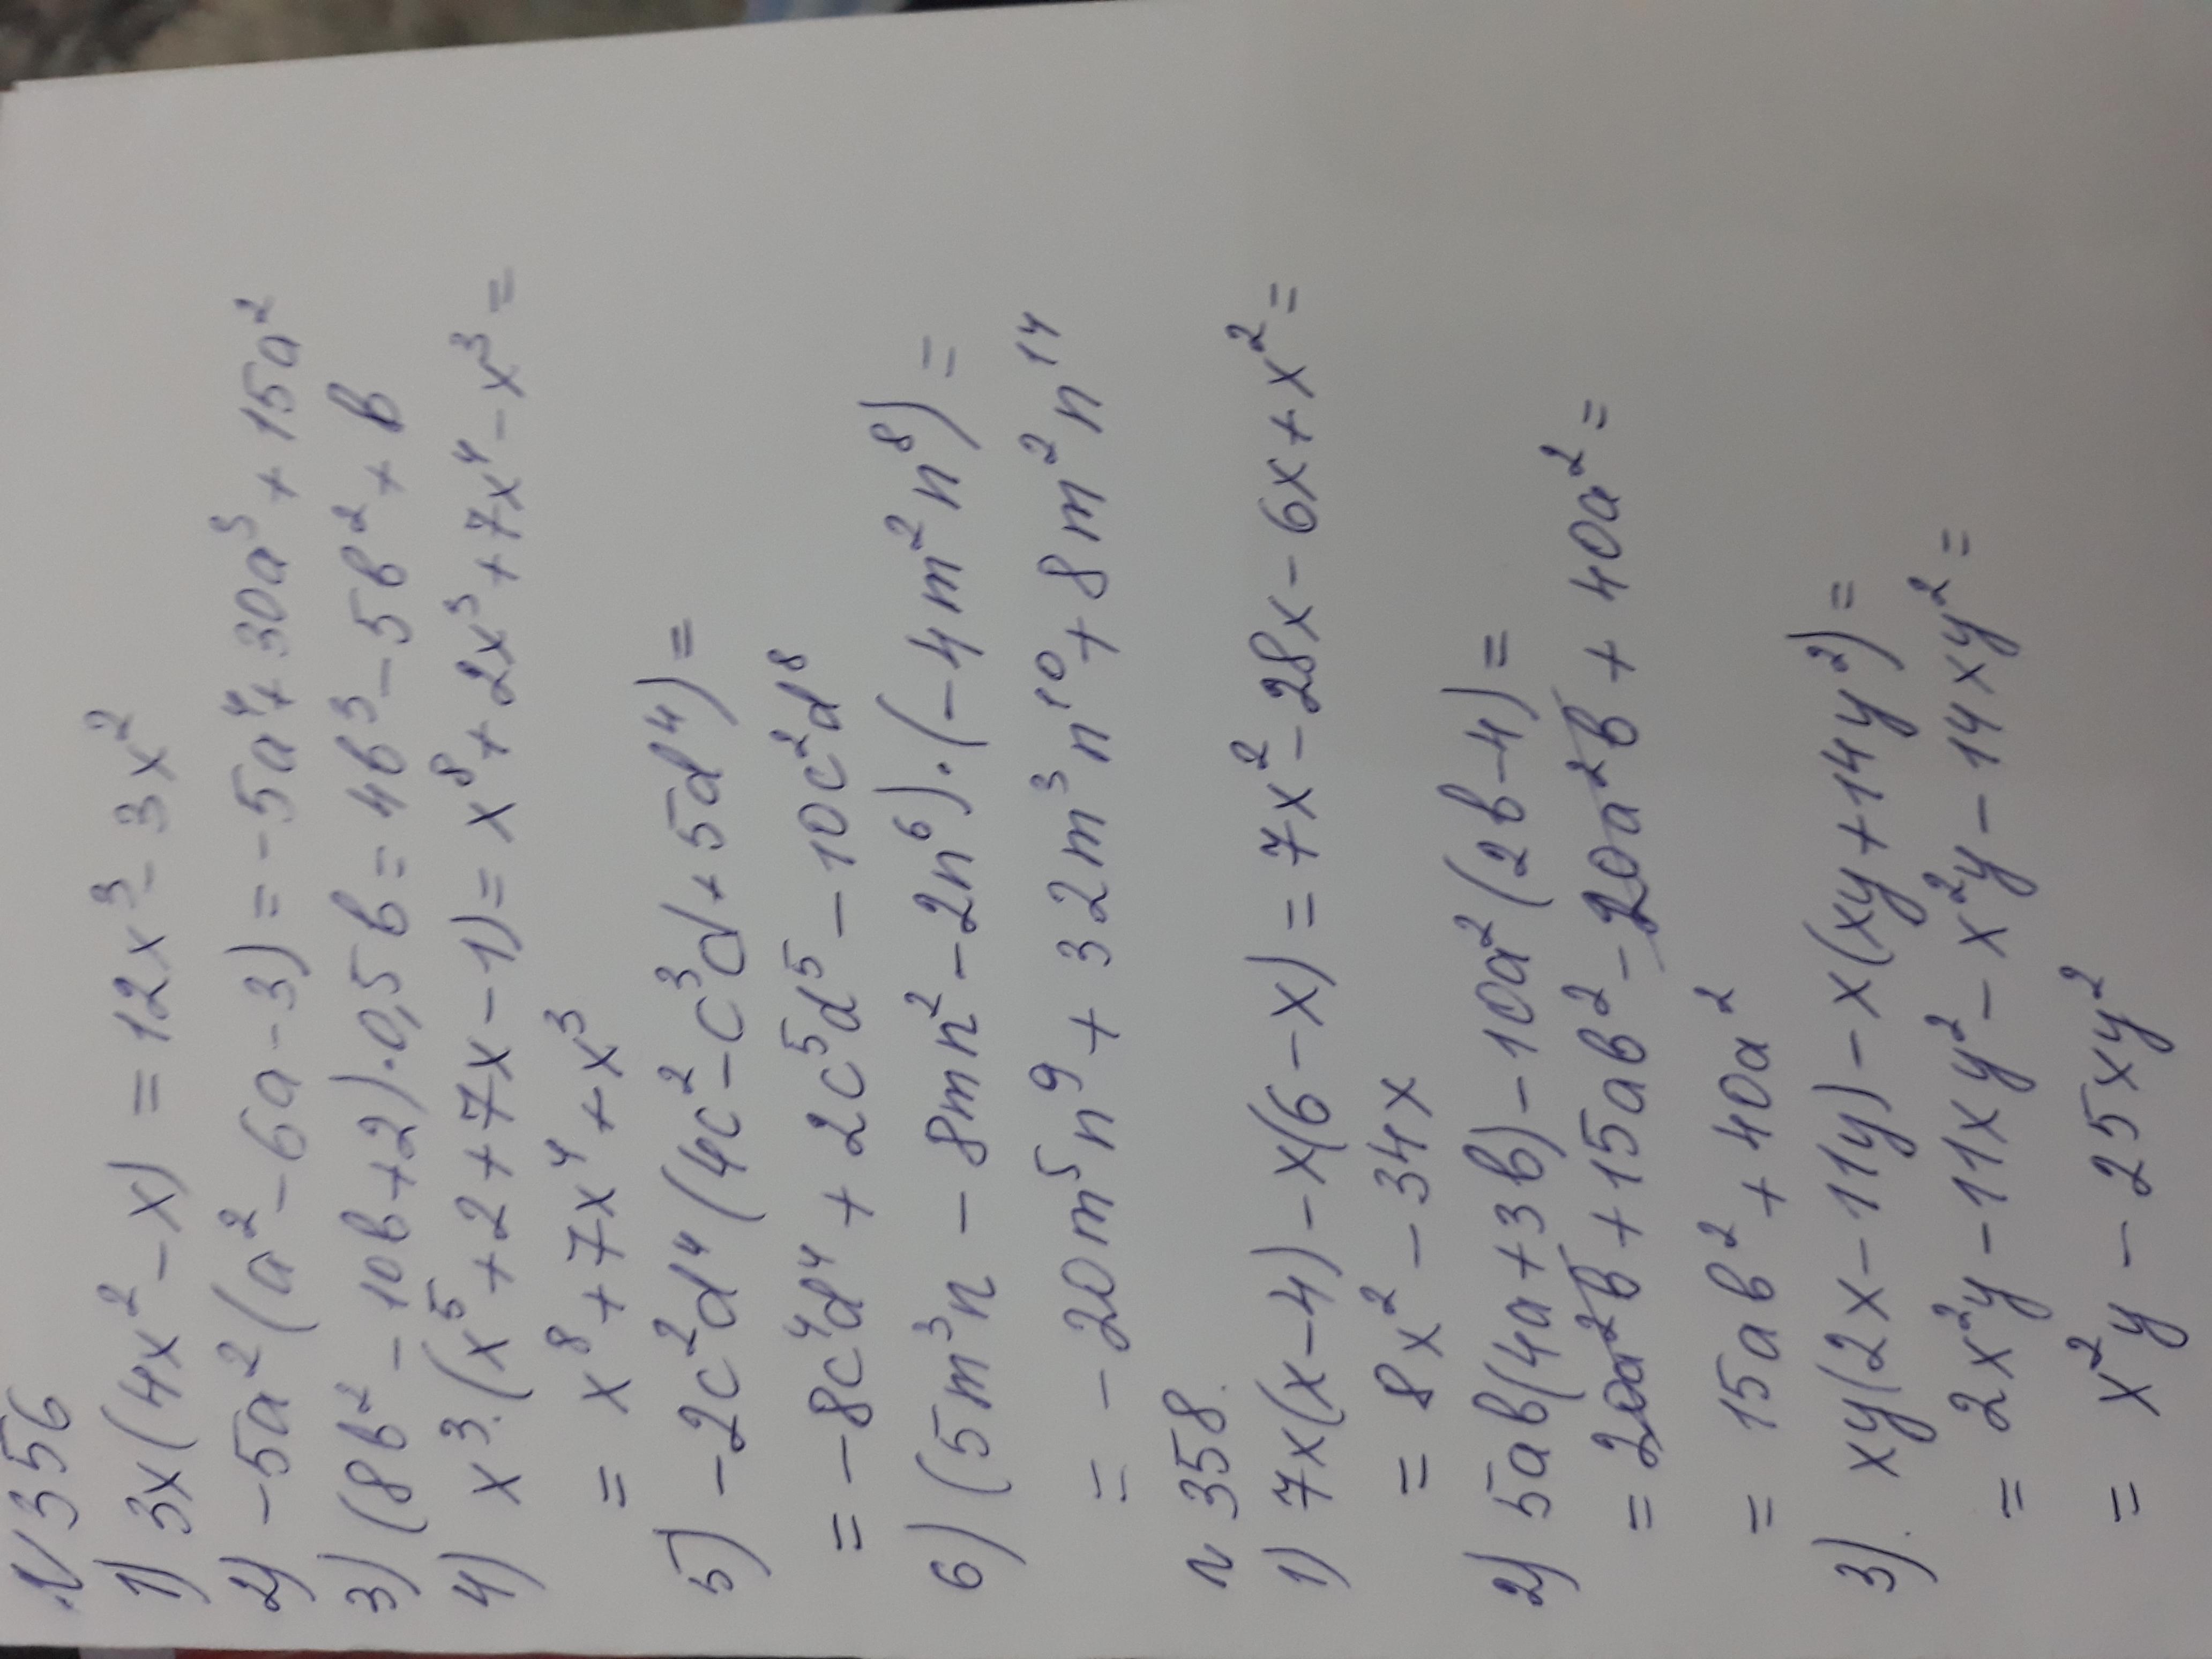 N 356
1) 3x(4x² - x) = 12x³ - 3x²
2) -5a²(a² - 6a - 3) = -5a⁴ + 30a³ + 15a²
3) (8b² - 10b + 2) · 0,5b = 4b³ - 5b² + b
4) x³ · (x⁵ + 2 + 7x - 1) = x⁸ + 2x³ + 7x⁴ - x³ =
= x⁸ + 7x⁴ + x³
5) -2c²d⁴(4c² - c³d + 5d⁴) =
= -8c⁴d⁴ + 2c⁵d⁵ - 10c²d⁸
6) (5m³n - 8mn² - 2n⁶) · (-4m²n⁸) =
= -20m⁵n⁹ + 32m³n¹⁰ + 8m²n¹⁴
N 358.
1) 7x(x-4) - x(6-x) = 7x² - 28x - 6x + x² =
= 8x² - 34x
2) 5ab(4a+3b) - 10a²(2b-4) =
= 20a²b + 15ab² - 20a²b + 40a² =
= 15ab² + 40a²
3). xy(2x - 11y) - x(xy + 14y²) =
= 2x²y - 11xy² - x²y - 14xy² =
= x²y - 25xy²